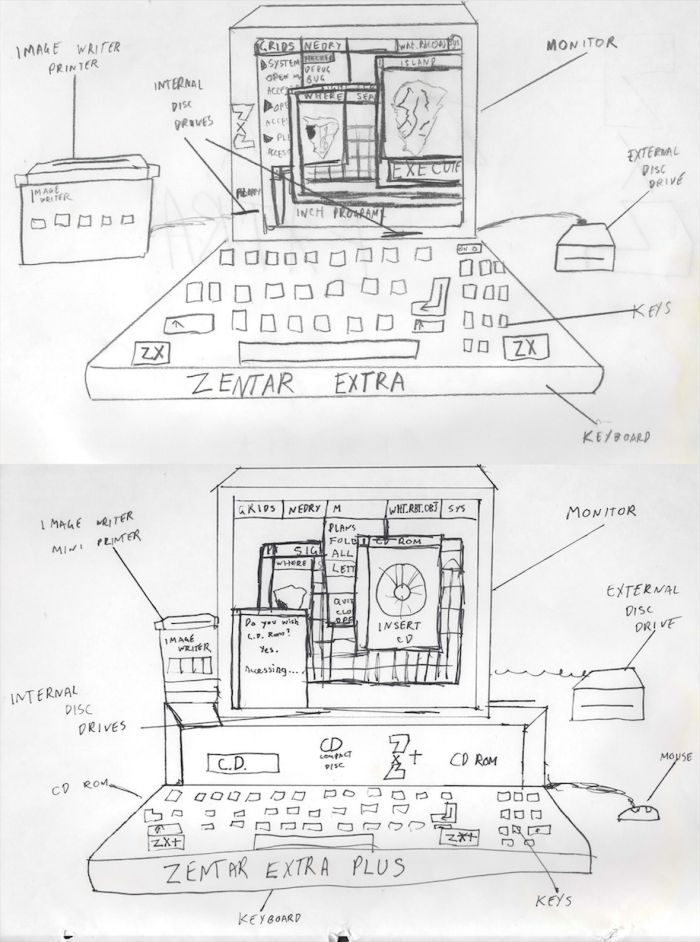 IMAGE WRITER
PRINTER
INTERNAL
DISC
DRIVES
IMAGE
WRITER
GRIDS NEDRY
SYSTEM
DEBUG
BUG
ISLAND
WHERE
EXECUTE
INCH PROGRAM
ZXZ
MONITOR
EXTERNAL
DISC
DRIVE
KEYS
ZX
ZX
ZENTAR EXTRA
KEYBOARD
IMAGE WRITER
MINI PRINTER
IMAGE
WRITER
INTERNAL
DISC
DRIVES
CD ROM
GRIDS NEDRY M WHT.RBT.OBJ SYS
PLANS
FOLD
ALL
LETT
QUIT
CLO
OPE
SIG
WHERE
CD ROM
INSERT
CD
Do you wish
C.D. Rom?
Yes.
Accessing...
MONITOR
EXTERNAL
DISC
DRIVE
MOUSE
C.D.
CD
COMPACT
DISC
ZXZ +
CD ROM
ZX+
ZX+
ZENTAR EXTRA PLUS
KEYS
KEYBOARD